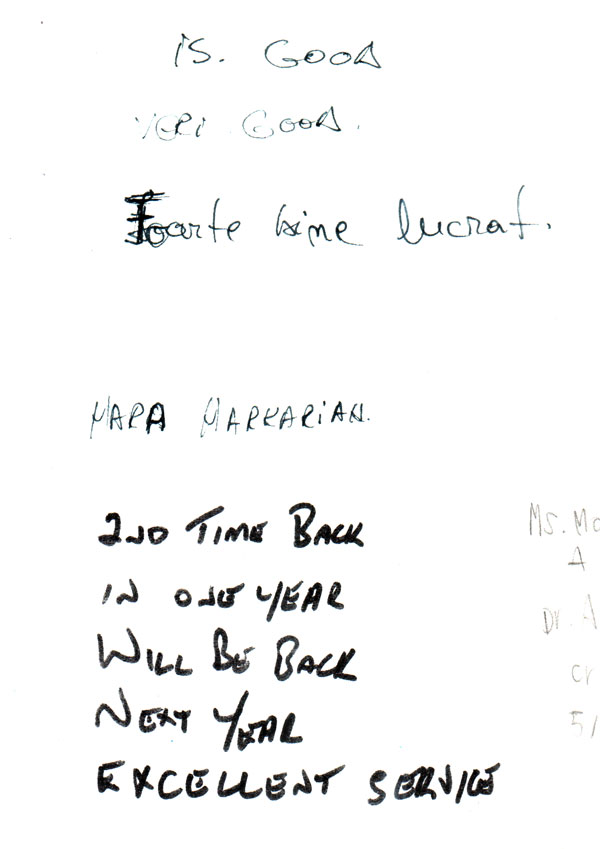 is. GOOD
VERI GOOD.
Foarte bine lucrat.
MARA MARKARIAN.
2ND TIME BACK
IN ONE YEAR
WILL BE BACK
NEXT YEAR
EXCELLENT SERVICE
Ms. Mc
A
Dr. A
cr
5/